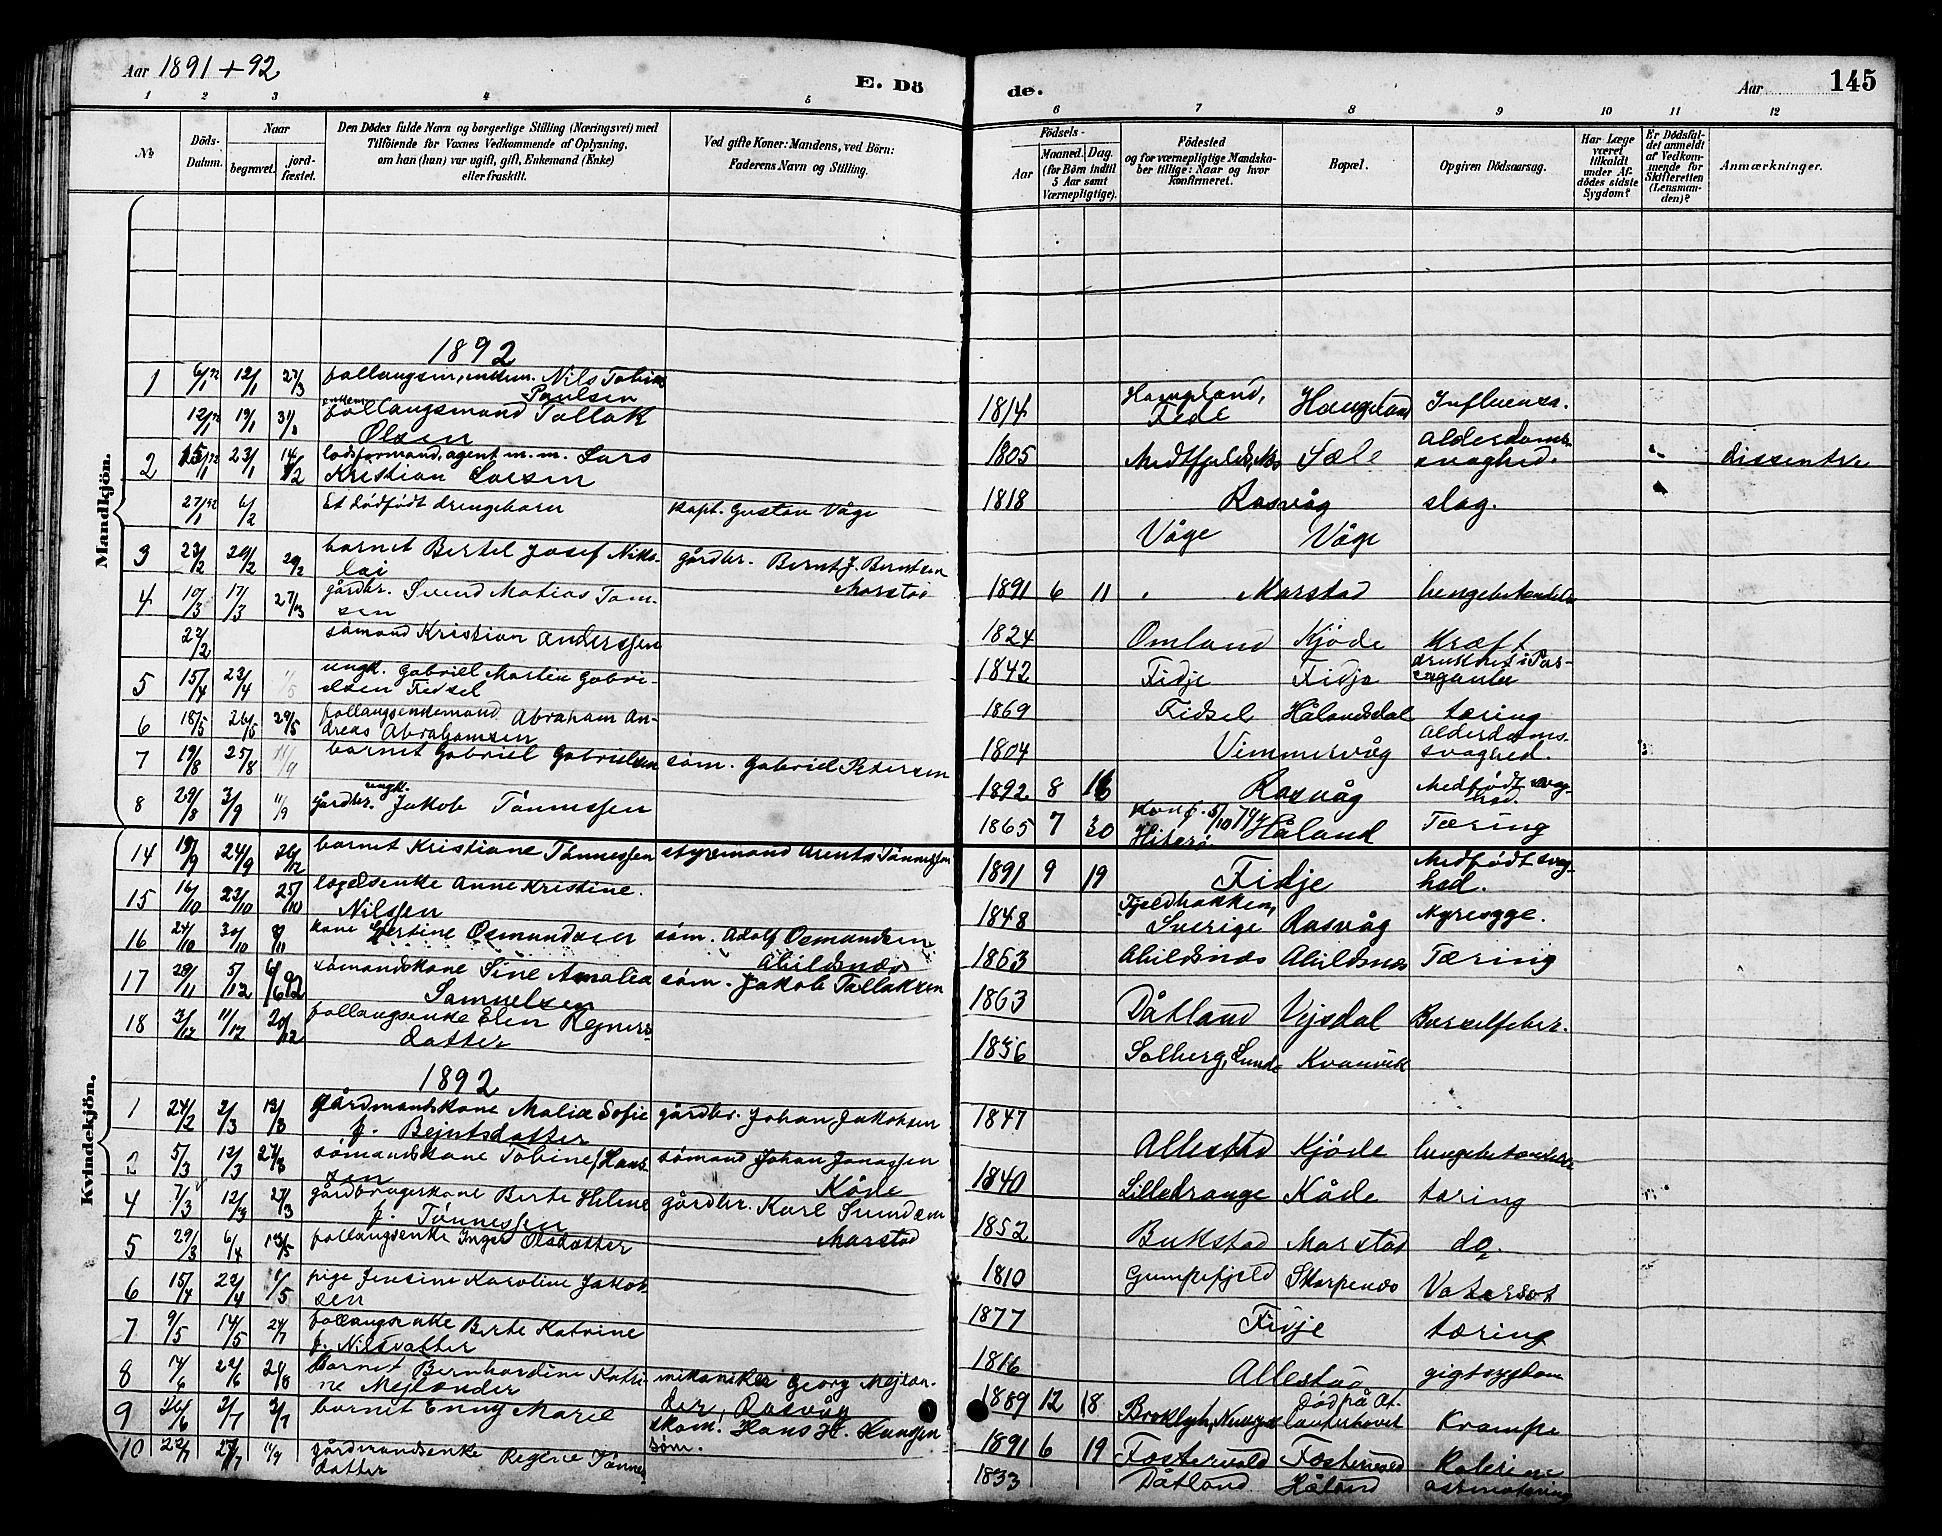 Aar 1891 + 92
E. Dö
de.
Aar
145
1 2 3 4 5 6 7 8 9 10 11 12
No
Döds-Datum.
Naar
begravet.
jord-fæstet.
Den Dödes fulde Navn og borgerlige Stilling (Næringsvei) med
Tilföiende for Voxnes Vedkommende af Oplysning,
om han (hun) var ugift, gift, Enkemand (Enke)
eller fraskilt.
Ved gifte Koner: Mandens, ved Börn:
Faderens Navn og Stilling.
Födsels-
Aar
Maaned. Dag.
(for Børn indtil
5 Aar samt
Værnepligtige).
Födested
og for værnepligtige Mandska-
ber tillige: Naar og hvor
konfirmeret.
Bopæl.
Opgiven Dödsaarsag.
Har Læge
været
tilkaldt
under Af-
dödes sidste
Sygdom?
Er Dödsfal-
det anmeldt
af Vedkom-
mende for
Skifteretten
(Lensman-
den)?
Anmærkninger.
Mandkjön.
1892
1 6/1 92 12/1 27/3 Nils Tobias
Paulsen 1814 Fede Influensa.
12/1 92 19/1 follaugsmand Tallak
Olsen 1805 Sæle alderdoms-
svaghed. dissenter
2 15/1 92 23/1 14/2 lodsformand, agent m. m. Lars
Kristian Larsen 1818 Rasvåg slag.
27/1 92 6/2 Et dødfødt drengebarn kapt. Gustav Våge Våge Våge
3 23/2 29/2 29/2 barnet Bertel Josef Niko-
lai gårdbr. Bernt J. Berntsen
Marstad 1891 6 11 Marstad
4 10/3 17/3 27/3 gårdbr. Svend Matias Tom-
sen 1824 Omland Kjøde Kræft
22/2 sømand Kristian Anderssen 1842 Fidje Fidje
5 15/4 23/4 1/5 ungk. Gabriel Marten Gabri-
elsen Fidsel 1869 Fidsel Hålandsdal tæring
6 18/5 26/5 29/5 Abraham An-
dreas Abrahamsen 1804 Vimmervåg alderdoms-
svaghed.
7 19/8 25/8 11/9 barnet Gabriel Gabrielsen søm. Gabriel Petersen 1892 8 16 Rasvåg Medfødt svag-
hed.
8 29/8 3/9 11/9 ungk.
gårdbr. Jakob Tønnessen 1865 7 30 Konf. 5/10 79
Hiterø Håland Tæring
Kvindekjön.
14 19/9 24/9 26/12 barnet Kristiane Tønnessen styrmand Arents Tønnessen 1891 9 19 Fidje Medfødt svag-
hed.
15 16/10 23/10 25/10 Anne Kristine
Nilssen 1848 Sverige Rasvåg Nyresyge.
16 24/10 30/10 8/11 kone Osmundsen søm. Adolf Osmundsen
Abildsnæs 1863 Abildsnæs Abildsnæs Tæring
17 28/11 5/12 6/6 92 sømandskone Sine Amalia
Samuelsen søm. Jakob Tallaksen 1863 Dåtland Vejsdal Barselfeber.
18 3/12 11/12 20/12 follaugsenke Elen Rejners-
datter 1836 Solberg, Lunde Kvanvik
1892
1 24/2 2/3 13/3 gårdmandskone Malia Sofie
f. Bejntsdatter gårdbr. Johan Jakobsen 1847 Allestad Kjøde
2 5/3 12/3 27/3 sømandskone Tobine Hans-
sen sømand Johan Jonassen
Kåde 1840 Lilledrange Kåde tæring
4 7/3 12/3 27/3 gårdbrugerkone Berte Helene
f. Tønnessen gårdbr. Karl Svendsen
Marstad 1852 Bukstad Marstad do.
5 29/3 6/4 follaugsenke Inger Olsdatter 1810 Gumpefjeld Skarpenæs Vatersot
6 15/4 22/4 1/5 pige Jensine Karoline Jakob-
sen 1877 Fidje tæring
7 9/5 14/5 24/7 follaugsenke Berte Katrine
f. Nilsdatter 1816 Allestad gigtsygdom
8 22/6 28/8 barnet Bernhardine Katri-
ne Mejlænder mekaniker Georg Mejlæn-
der, Rasvåg 1889 12 18 Død på At-
lanterhavet Krampe
9 26/6 2/7 3/7 barnet Enny Marie skom. Hans H. Hansen 1891 6 19 Fostervold Fostervold Kolerine
10 22/7 27/7 11/9 gårdmandsenke Regine Tønnes-
datter søm. 1833 Dåtland Håland